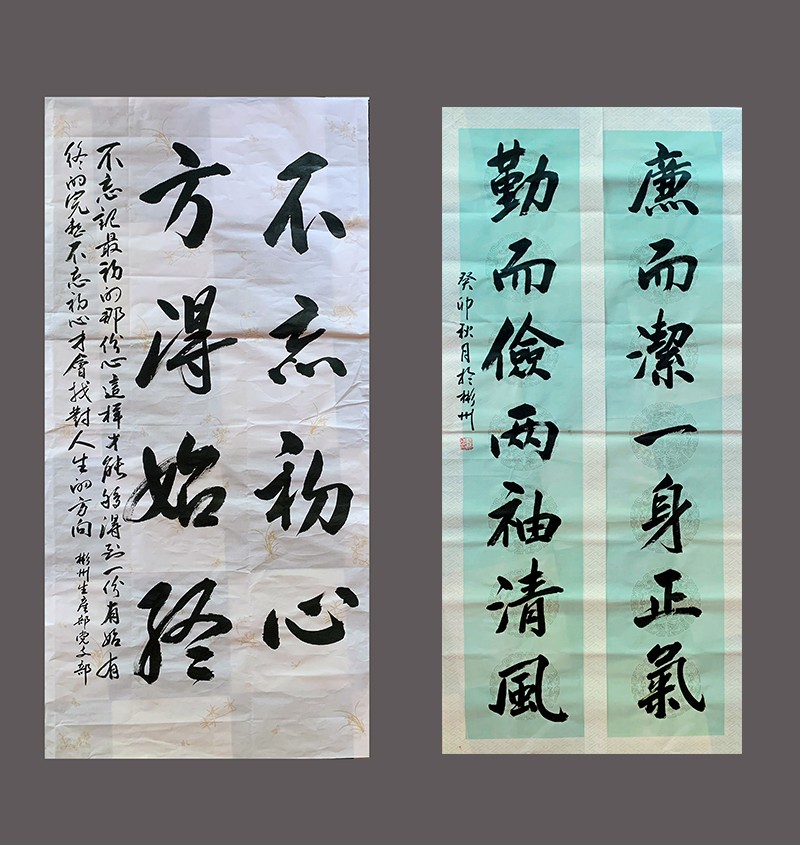 不忘初心
方得始終
不忘記最初的那份心這样才能夠得到一份有始有
終的完整不忘初心才會找對人生的方向
彬州生產部党支部
廉而潔一身正氣
勤而儉两袖清風
癸卯秋月於彬州